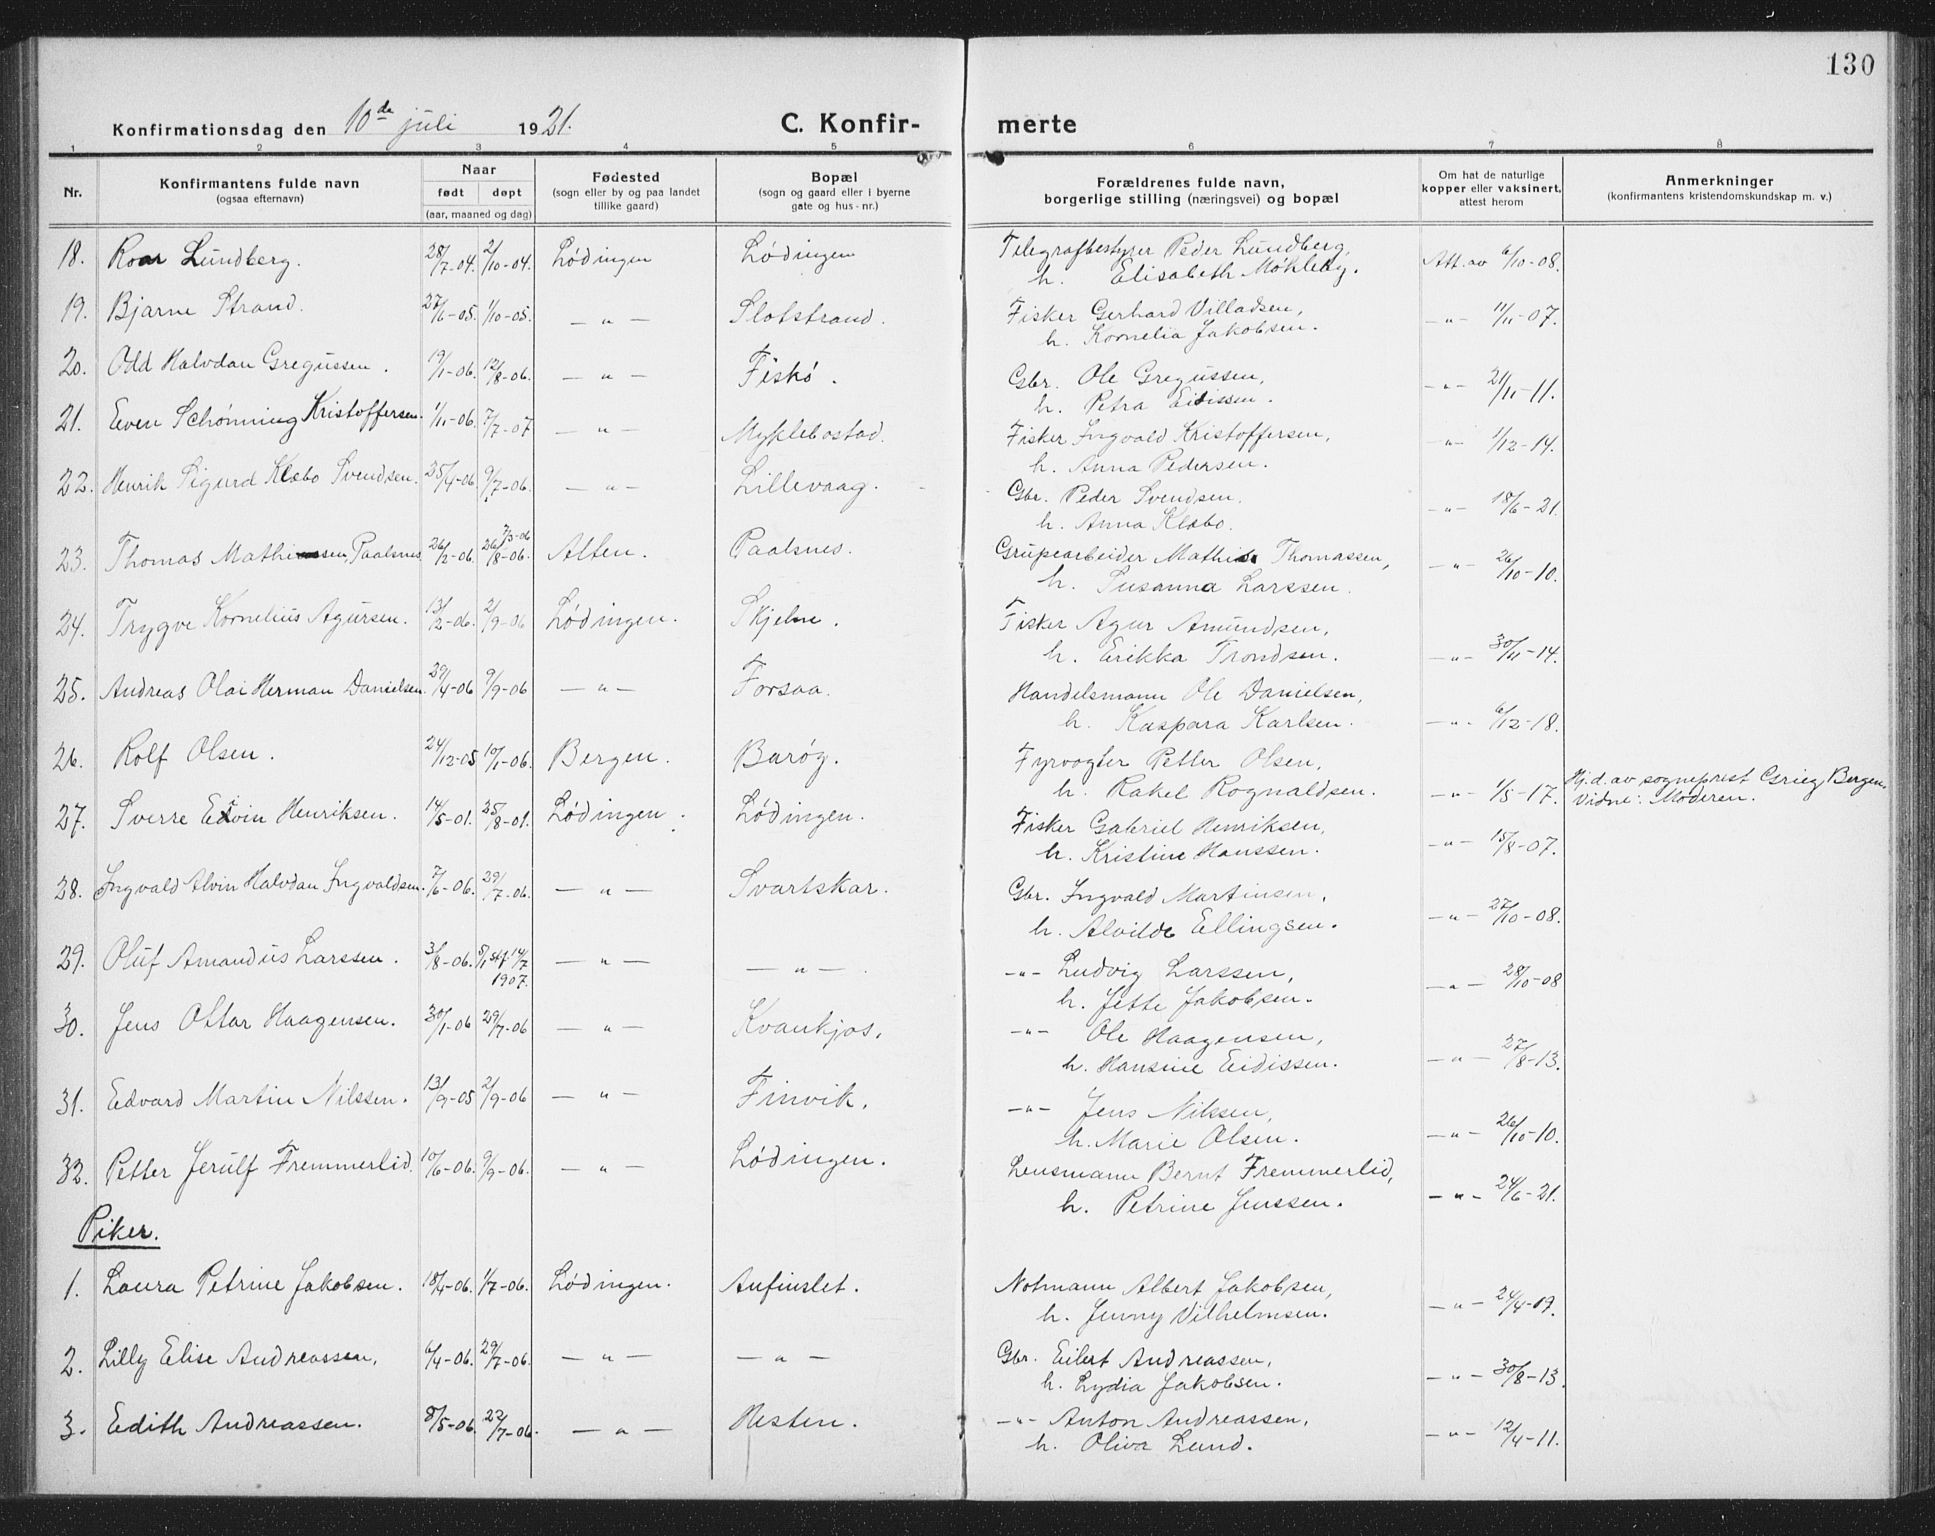 130
Konfirmationsdag den 10de juli 1921.
C. Konfir- merte
1 2 3 4 5 6 7 8
Nr. Konfirmantens fulde navn (ogsaa efternavn) Naar født døpt (aar, maaned og dag) Fødested (sogn eller by og paa landet tillike gaard) Bopæl (sogn og gaard eller i byerne gate og hus-nr.) Forældrenes fulde navn, borgerlige stilling (næringsvei) og bopæl Om hat de naturlige kopper eller vaksinert, attest herom Anmerkninger (konfirmantens kristendomskundskap m. v.)
18. Roar Lundberg. 28/7-04. 2/10-04. Lødingen Lødingen Telegrafbestyrer Peder Lundberg, Att. av 6/10-08.
h. Elisabeth Møkleby.
19. Bjarne Strand. 27/6-05. 1/10-05. — " — Slotstrand. Fisker Gerhard Villadsen, — " — 11/11-07.
h. Kornelia Jakobsen.
20. Odd Halvdan Gregussen. 19/1-06. 12/8-06. — " — Fiskø. Gbr. Ole Gregussen, — " — 21/11-11.
h. Petra Eidissen.
21. Even Schønning Kristoffersen. 1/11-06. 7/7-07 — " — Myklebostad. Fisker Ingvald Kristoffersen, — " — 1/12-14.
h. Anna Pedersen.
22. Henrik Sigurd Klæbo Svendsen. 25/4-06 9/7-06. — " — Lillevaag. Gbr. Peder Svendsen. — " — 18/6-21.
h. Anna Klæbo.
7/3-06
23. Thomas Mathisen, Paalsnes 26/2-06. 26/8-06. Alten. Paalsnes. Grupearbeider Mathis Thomassen, — " — 26/10-10.
h. Susanna Larssen.
24. Trygve Kornelius Agursen. 13/2-06. 2/9-06 Lødingen. Skjelne. Fisker Agur Amundsen, — " — 30/11-14.
h. Erikka Trondsen.
25. Andreas Olai Herman Danielsen. 29/4-06 9/9-06 — " — Forsaa. Handelsmann Ole Danielsen, — " — 6/12-18.
h. Kaspara Karlsen.
26. Rolf Olsen. 24/12-05 10/1-06. Bergen. Barøg. Fyrvogter Petter Olsen, — " — 1/5-17. Hj.d. av sogneprest Grieg, Bergen.
h. Rakel Rognaldsen. Vidne: Moderen.
27. Sverre Edvin Henriksen. 14/5-01. 25/8-01. Lødingen. Lødingen. Fisker Gabriel Henriksen, — " — 15/8-07.
h. Kristine Hanssen.
28. Ingvald Alvin Halvdan Ingvaldsen. 7/6-06. 29/7-06. — " — Svartskar. Gbr. Ingvald Martinsen, — " — 27/10-08.
h. Alvilde Ellingsen.
29. Oluf Amandus Larssen. 3/8-06. 5/1 14/7 1907. — " — — " — — " — Ludvig Larssen, — " — 28/10-08
h. Jette Jakobsen.
30. Jens Ottar Haagensen. 30/1-06 29/7-06 — " — Kvankjos. — " — Ole Haagensen, — " — 27/8-13.
h. Hansine Eidissen.
31. Edvard Martin Nilssen. 13/9-05 2/9-06 — " — Finvik. — " — Jens Nilssen, — " — 26/10-10.
h. Marie Olsen.
32. Petter Jerulf Fremmerlid. 10/6-06. 9/9-06. — " — Lødingen. Lensmann Bernt Fremmerlid, — " — 24/6-21.
h. Petrine Jenssen.
Piker.
1. Laura Petrine Jakobsen. 18/4-06. 1/7-06. Lødingen. Anfinslet. Notmann Albert Jakobsen, — " — 24/4-09.
h. Jenny Vilhelmsen.
2. Lilly Elise Andreassen. 6/4-06. 29/7-06. — " — — " — Gbr. Eilert Andreassen, — " — 30/8-13.
h. Lydia Jakobsen.
3. Edith Andreassen. 8/5-06. 22/7-06. — " — Hesten. — " — Anton Andreassen, — " — 12/4-11.
h. Oliva Lund.